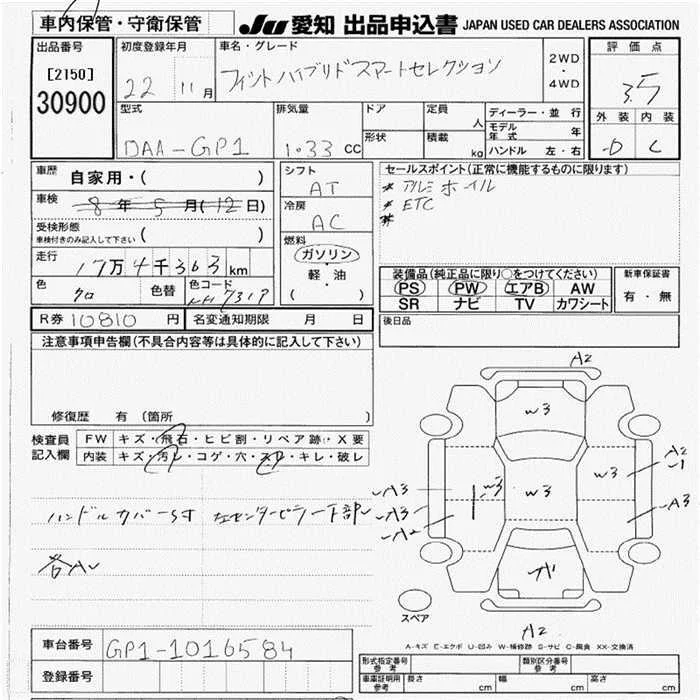 車内保管・守衛保管
JU 愛知 出品申込書 JAPAN USED CAR DEALERS ASSOCIATION
出品番号
[2150]
30900
初度登録年月
22 11月
車名・グレード
フィットハイブリドスマートセレクション
2WD
・
4WD
評価点
3.5
外装 内装
D C
型式
DAA-GP1
排気量
1.33 CC
ドア
形状
定員 人
積載 kg
ディーラー・並行
モデル年式 年
ハンドル 左・右
車歴 自家用・( )
車検 8年5月(12日)
受検形態
車検付きのみ記入して下さい ( )
走行 17万4千363km
色 クロ 色替 色コード NH731P
シフト
AT
冷房
AC
燃料
ガソリン・
軽・油
( )
セールスポイント(正常に機能するものに限ります)
* アルミホイル
* ETC
*
装備品(純正品に限り○をつけてください)
PS PW エアB AW
SR ナビ TV カワシート
新車保証書
有・無
R券 10810 円 名変通知期限 月 日
後日品
注意事項申告欄(不具合内容等は具体的に記入して下さい)
修復歴 有(箇所 )
検査員記入欄
FW キズ・飛石・ヒビ割・リペア跡・X要
内装 キズ・汚レ・コゲ・穴・スレ・キレ・破レ
ハンドルカバーSす 左センターピラー下部
各AU
A2
W3
W3
W3
W3
A2
-1
A3
A3
A3
A2
A1
A2
スペア
A-キズ E-エクボ U-凹み W-補修跡 S-サビ C-腐食 XX-交換済
車台番号 GP1-1016584
登録番号
形式指定番号
参考
類別区分番号
参考
車庫証明用
参考
長さ cm 幅 cm 高さ cm